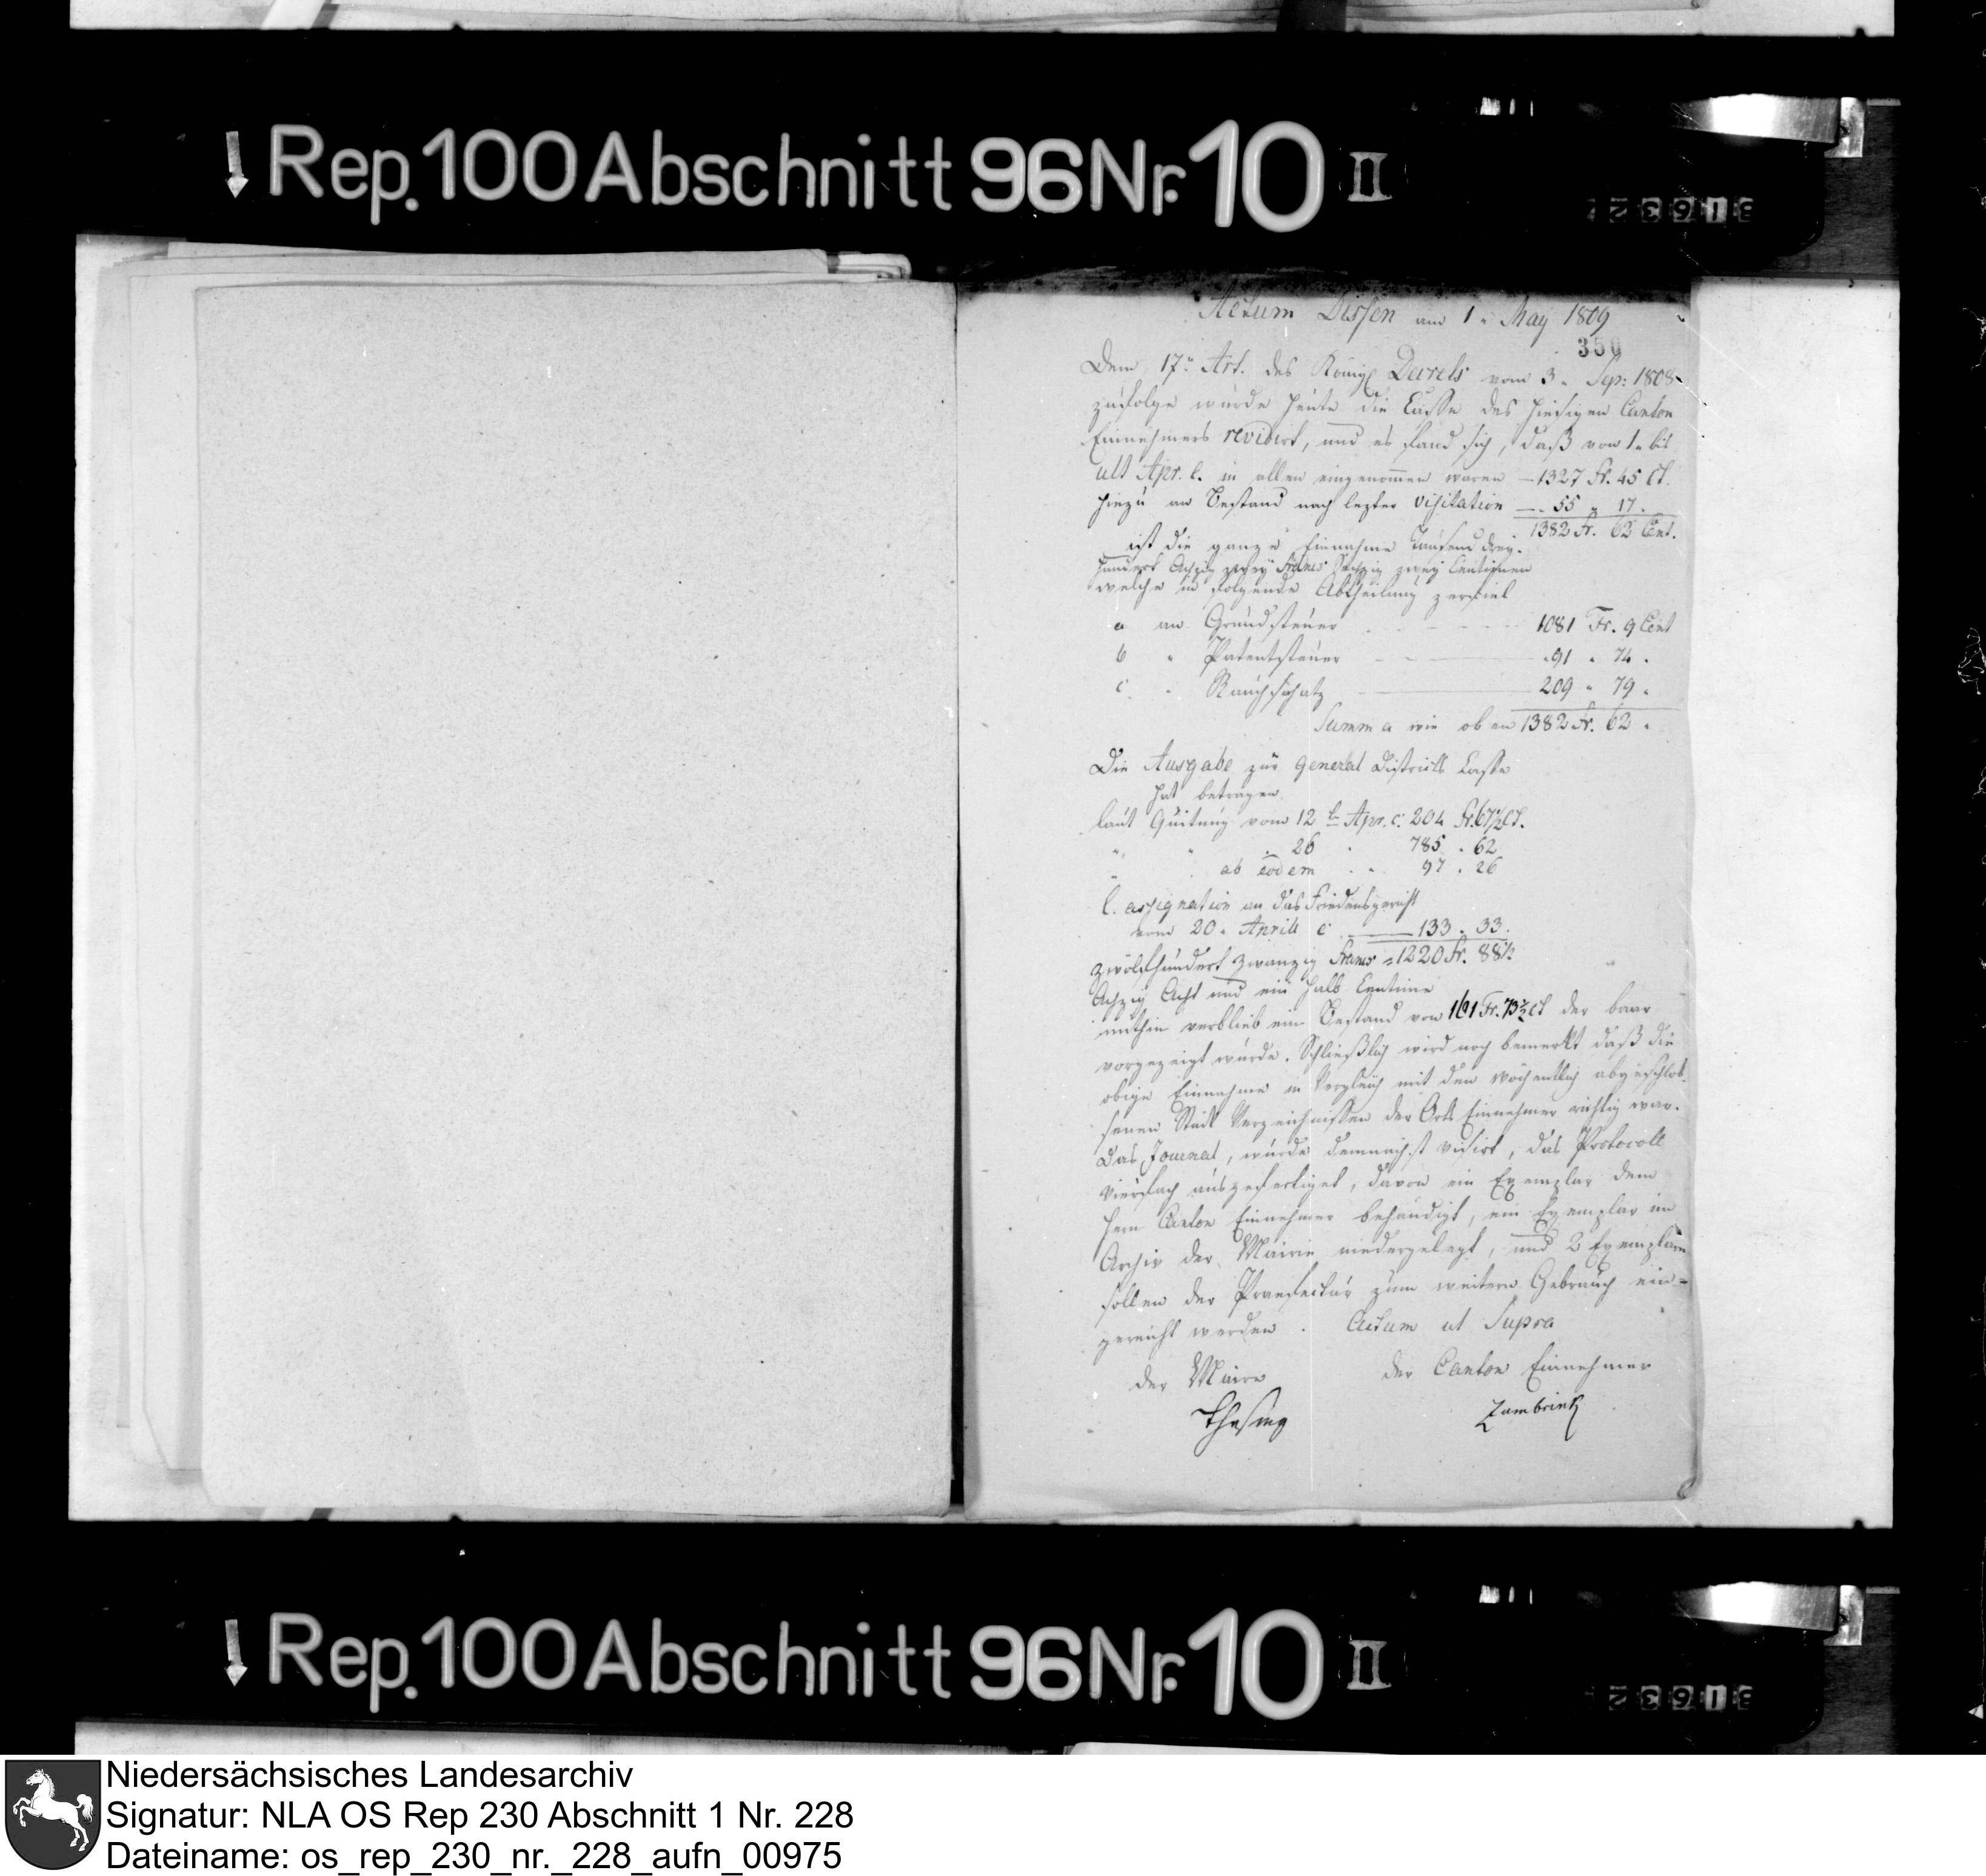 Rep. 100 Abschnitt 96 Nr. 10 II
Actum Dissen am 1. May 1809
350
Dem 17n Art. des Königl Decrets vom 3. Sep: 1808
zufolge wurde heute die Casse des hiesigen Canton
Einnehmers revidirt, und es fand sich, daß vom 1. bis
ult Apr. c. in allen eingenom̄en waren — 1327 Fr. 45 Ct.
hiezu an Bestand nach lezter Visitation — 55 " 17.
1382 Fr. 62 Cent.
ist die ganze Einnahme Tausend drey-
hundert Achzig zwey Francs Sechzig zwey Centimen
welche in folgende Abtheilung zerfiel
a an Grundsteuer 1081 Fr. 9 Cent
b " Patentsteuer 91 " 74.
c " Rauchschatz 209 " 79.
Summa wie oben 1382 Fr. 62.
Die Ausgabe zur General Districts Casse
hat betragen
laut Quitung vom 12 t Apr. c. 204 Fr. 67½ Ct.
" " 26 " 785 . 62
" ab eodem . . 97 . 26
l. assignation an das Friedensgericht
vom 20. Aprill c — 133 . 33.
Zwölfhundert zwanzig Francs = 1220 Fr. 88½
Achzig Acht und ein halb Centime
mithin verblieb ein Bestand von 161 Fr. 73½ Ct der baar
vorgezeigt wurde. Schließlich wird noch bemerkt daß die
obige Einnahme in Vergleich mit den wöchentlich abgeschlos-
senen Verzeichnissen der Orts Einnehmer richtig war.
Das Journal, wurde demnächst visirt, das Protocoll
vierfach ausgefertiget, davon ein Exemplar dem
Hern Canton Einnehmer behändigt, ein Exemplar im
Archiv der Mairie niedergelegt, und 2 Exemplare
sollen der Praefectur zum weitern Gebrauch ein-
gereicht werden. Actum ut Supra
der Maire der Canton Einnehmer
Thesing Zumbrink
Rep. 100 Abschnitt 96 Nr. 10 II
Niedersächsisches Landesarchiv
Signatur: NLA OS Rep 230 Abschnitt 1 Nr. 228
Dateiname: os_rep_230_nr._228_aufn_00975